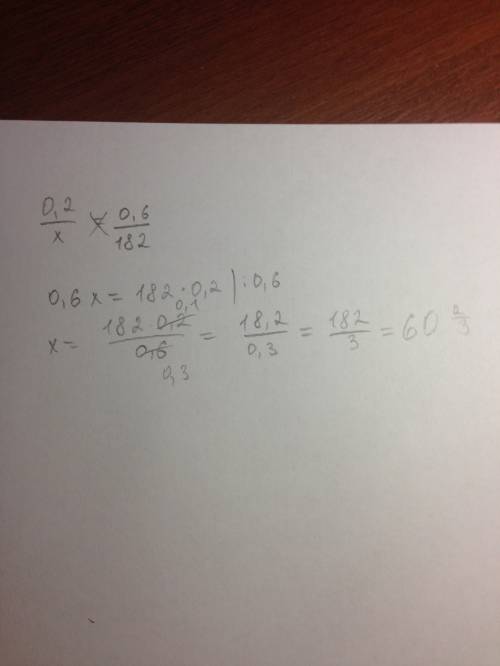 0,2/x = 0,6/182
0,6 x = 182 · 0,2 | : 0,6
x = 182 · 0,2 0,1 / 0,6 0,3 = 18,2/0,3 = 182/3 = 60 2/3